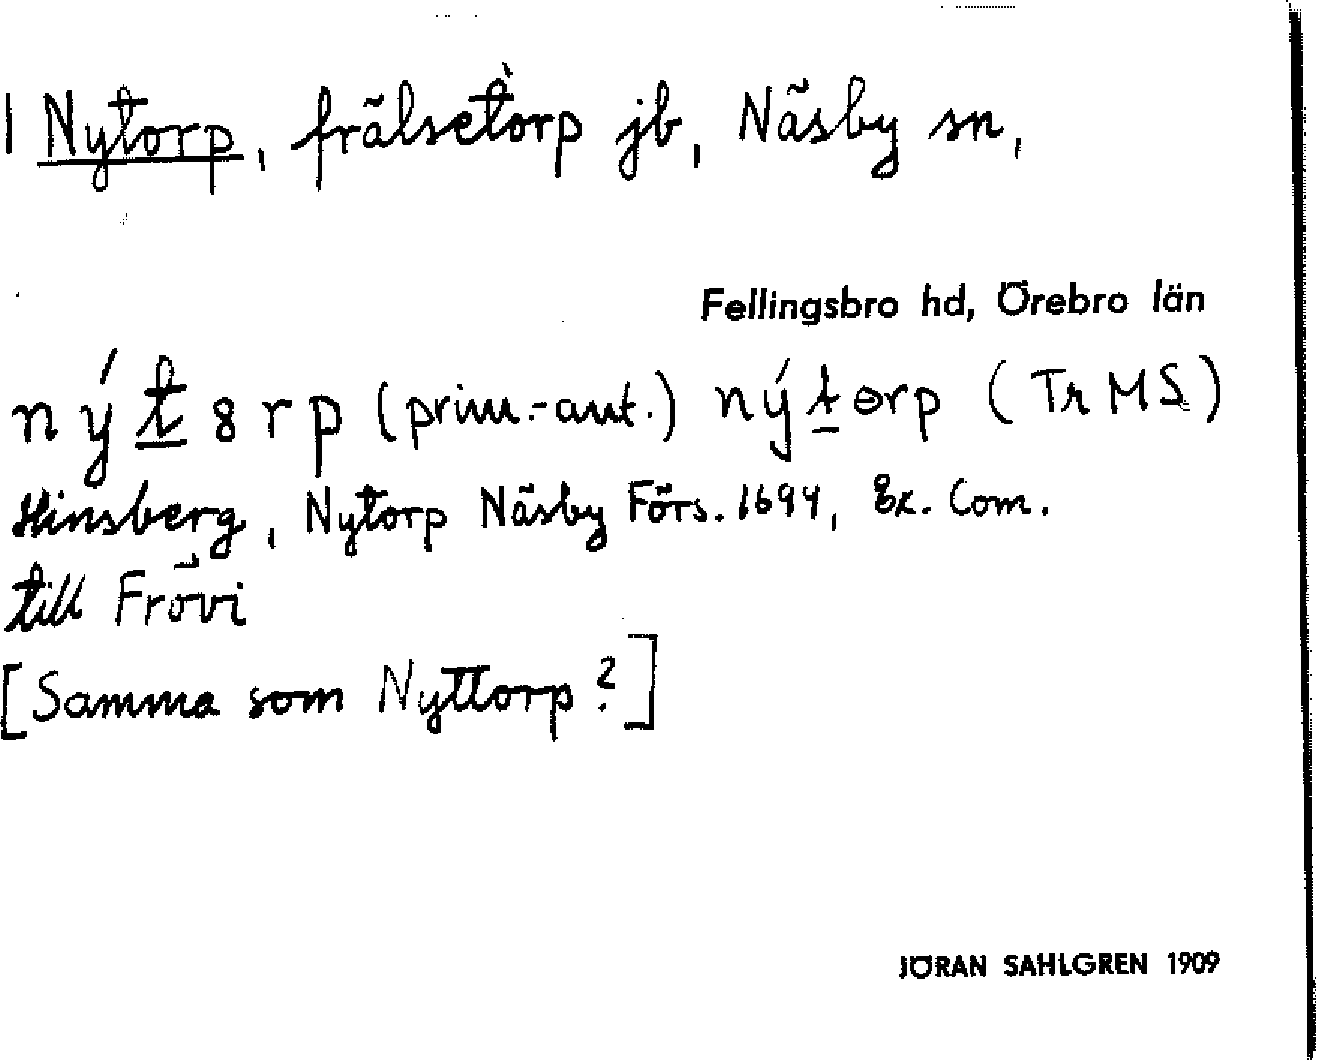 1 Nytorp, frälsetorp jb, Näsby sn,
Fellingsbro hd, Örebro län
nýt8rp (prim.-aut.) nýtɵrp (Tr MS)
Hinsberg, Nytorp Näsby Förs. 1694, Ex. Com.
till Frövi
[Samma som Nyttorp?]
JÖRAN SAHLGREN 1909